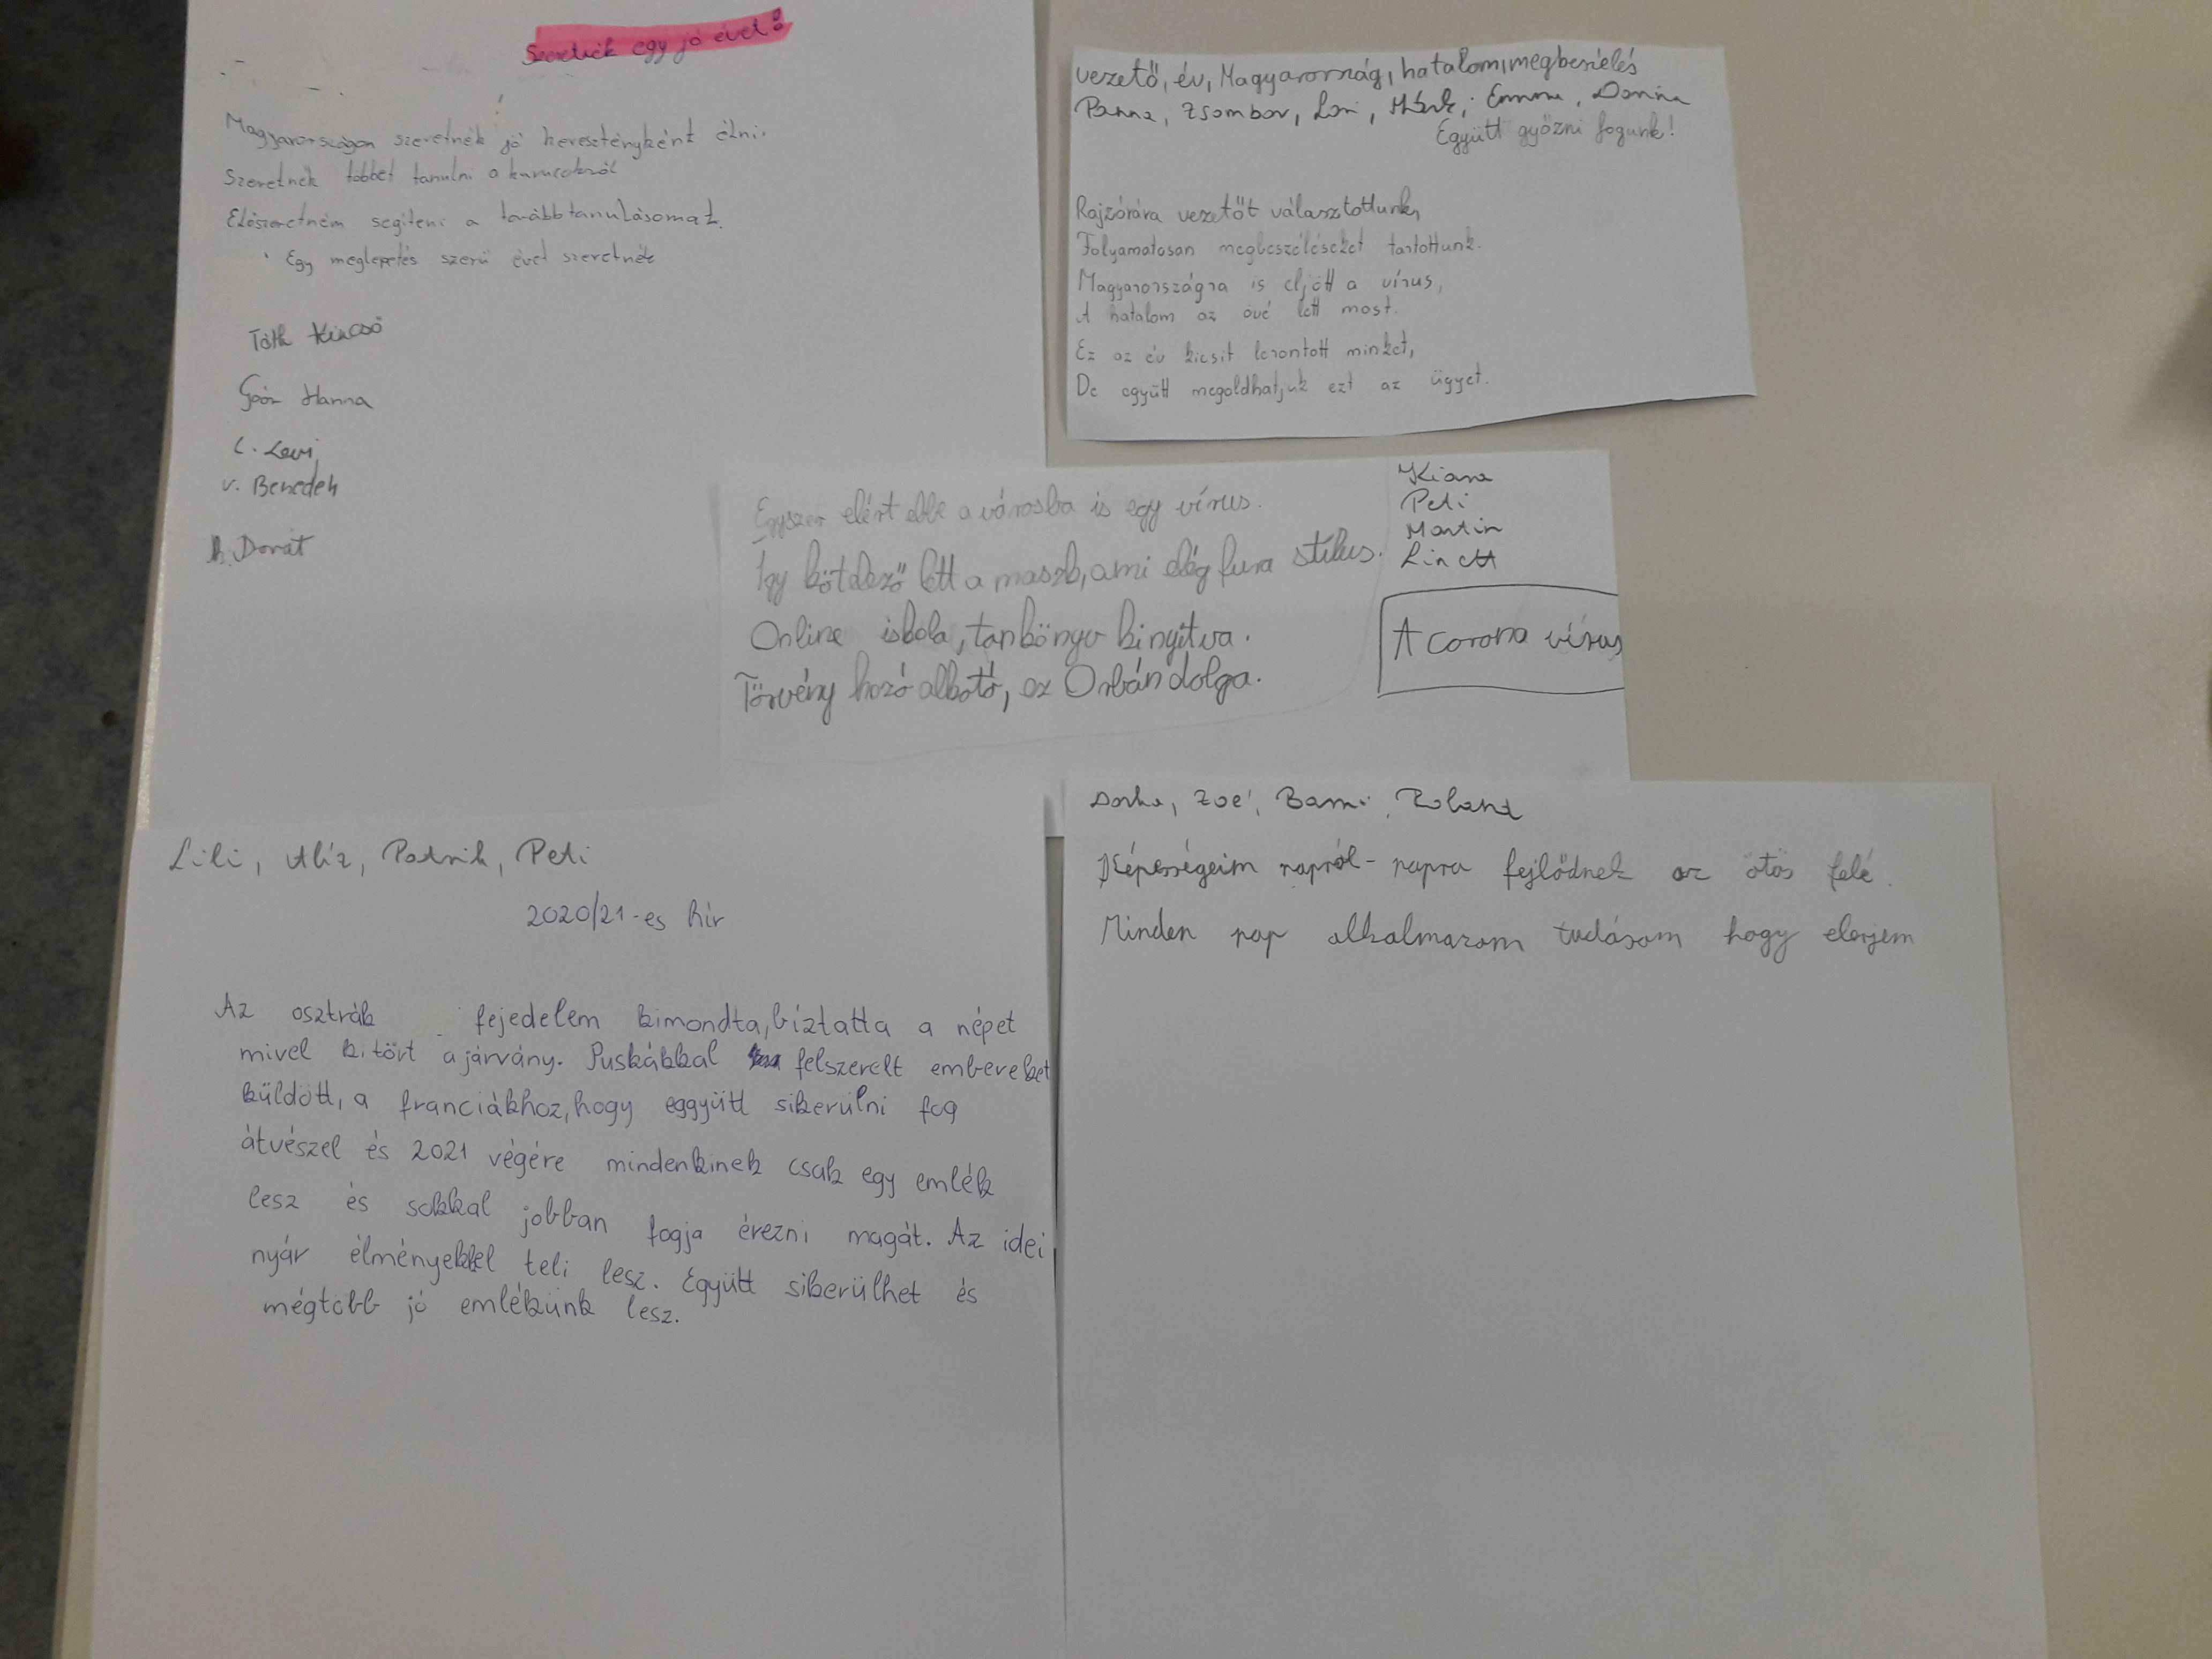 Szeretnék egy jó évet!
Magyarországon szeretnék jó keresztényként élni.
Szeretnék többet tanulni a kurucokról
Előszeretném segíteni a továbbtanulásomat.
Egy meglepetés szerű évet szeretnék
Tóth Kincső
Goór Hanna
L. Levi
V. Benedek
Donát
vezető, év, Magyarország, hatalom, megbeszélés
Panna, Zsombor, Lori, Márk, Emma, Donna
Együtt győzni fogunk!
Rajzórára vezetőt választottunk,
Folyamatosan megbeszéléseket tartottunk.
Magyarországra is eljött a vírus,
A hatalom az övé lett most.
Ez az év kicsit lerontott minket,
De együtt megoldhatjuk ezt az ügyet.
Egyszer elért ebbe a városba is egy vírus.
Így kötelező lett a maszk, ami elég fura stílus.
Online iskola, tankönyv kinyitva.
Törvény hozó alkotó, ez Orbán dolga.
Kiana
Peti
Martin
Linett
A corona vírus
Lili, Alíz, Patrik, Peti
2020/21-es hír
Az osztrák fejedelem kimondta, bíztatta a népet
mivel kitört a járvány. Puskákkal felszerelt embereket
küldött, a franciákhoz, hogy eggyütt sikerülni fog
átvészel és 2021 végére mindenkinek csak egy emlék
lesz és sokkal jobban fogja érezni magát. Az idei
nyár élményekkel teli lesz. Együtt sikerülhet és
mégtöbb jó emlékünk lesz.
Dorka, Zoé, Bami, Roland
Képességeim napról-napra fejlődnek az ötös felé.
Minden nap alkalmazom tudásom hogy elerjem